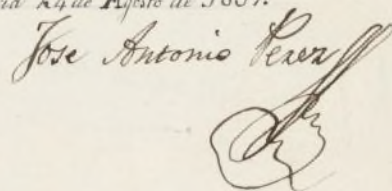 24 de Agosto de 1807.
Jose Antonio Perez